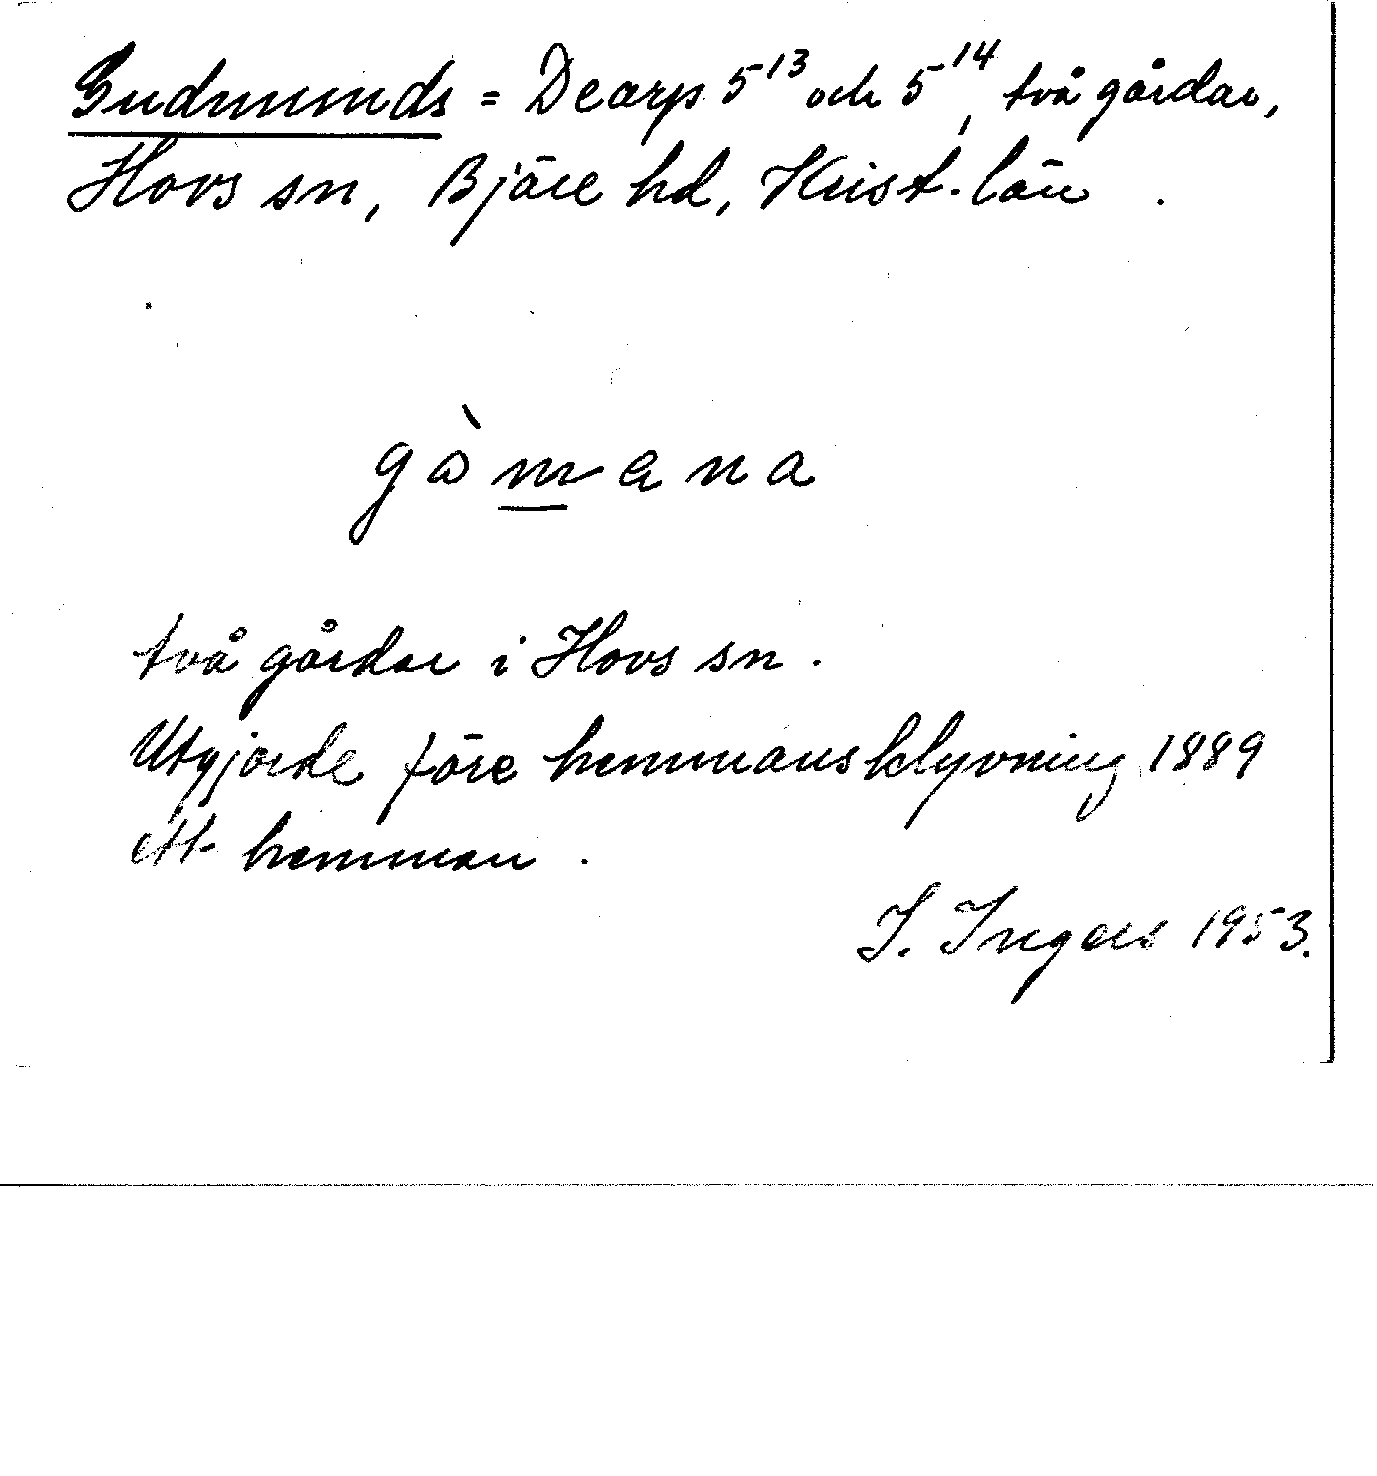 Gudmunds = Dearp 5¹³ och 5¹⁴, två gårdar,
Hovs sn, Bjäre hd, Krist. län.
gòmana
två gårdar i Hovs sn.
Utgjorde före hemmansklyvning 1889
ett hemman.
I. Ingers 1953.